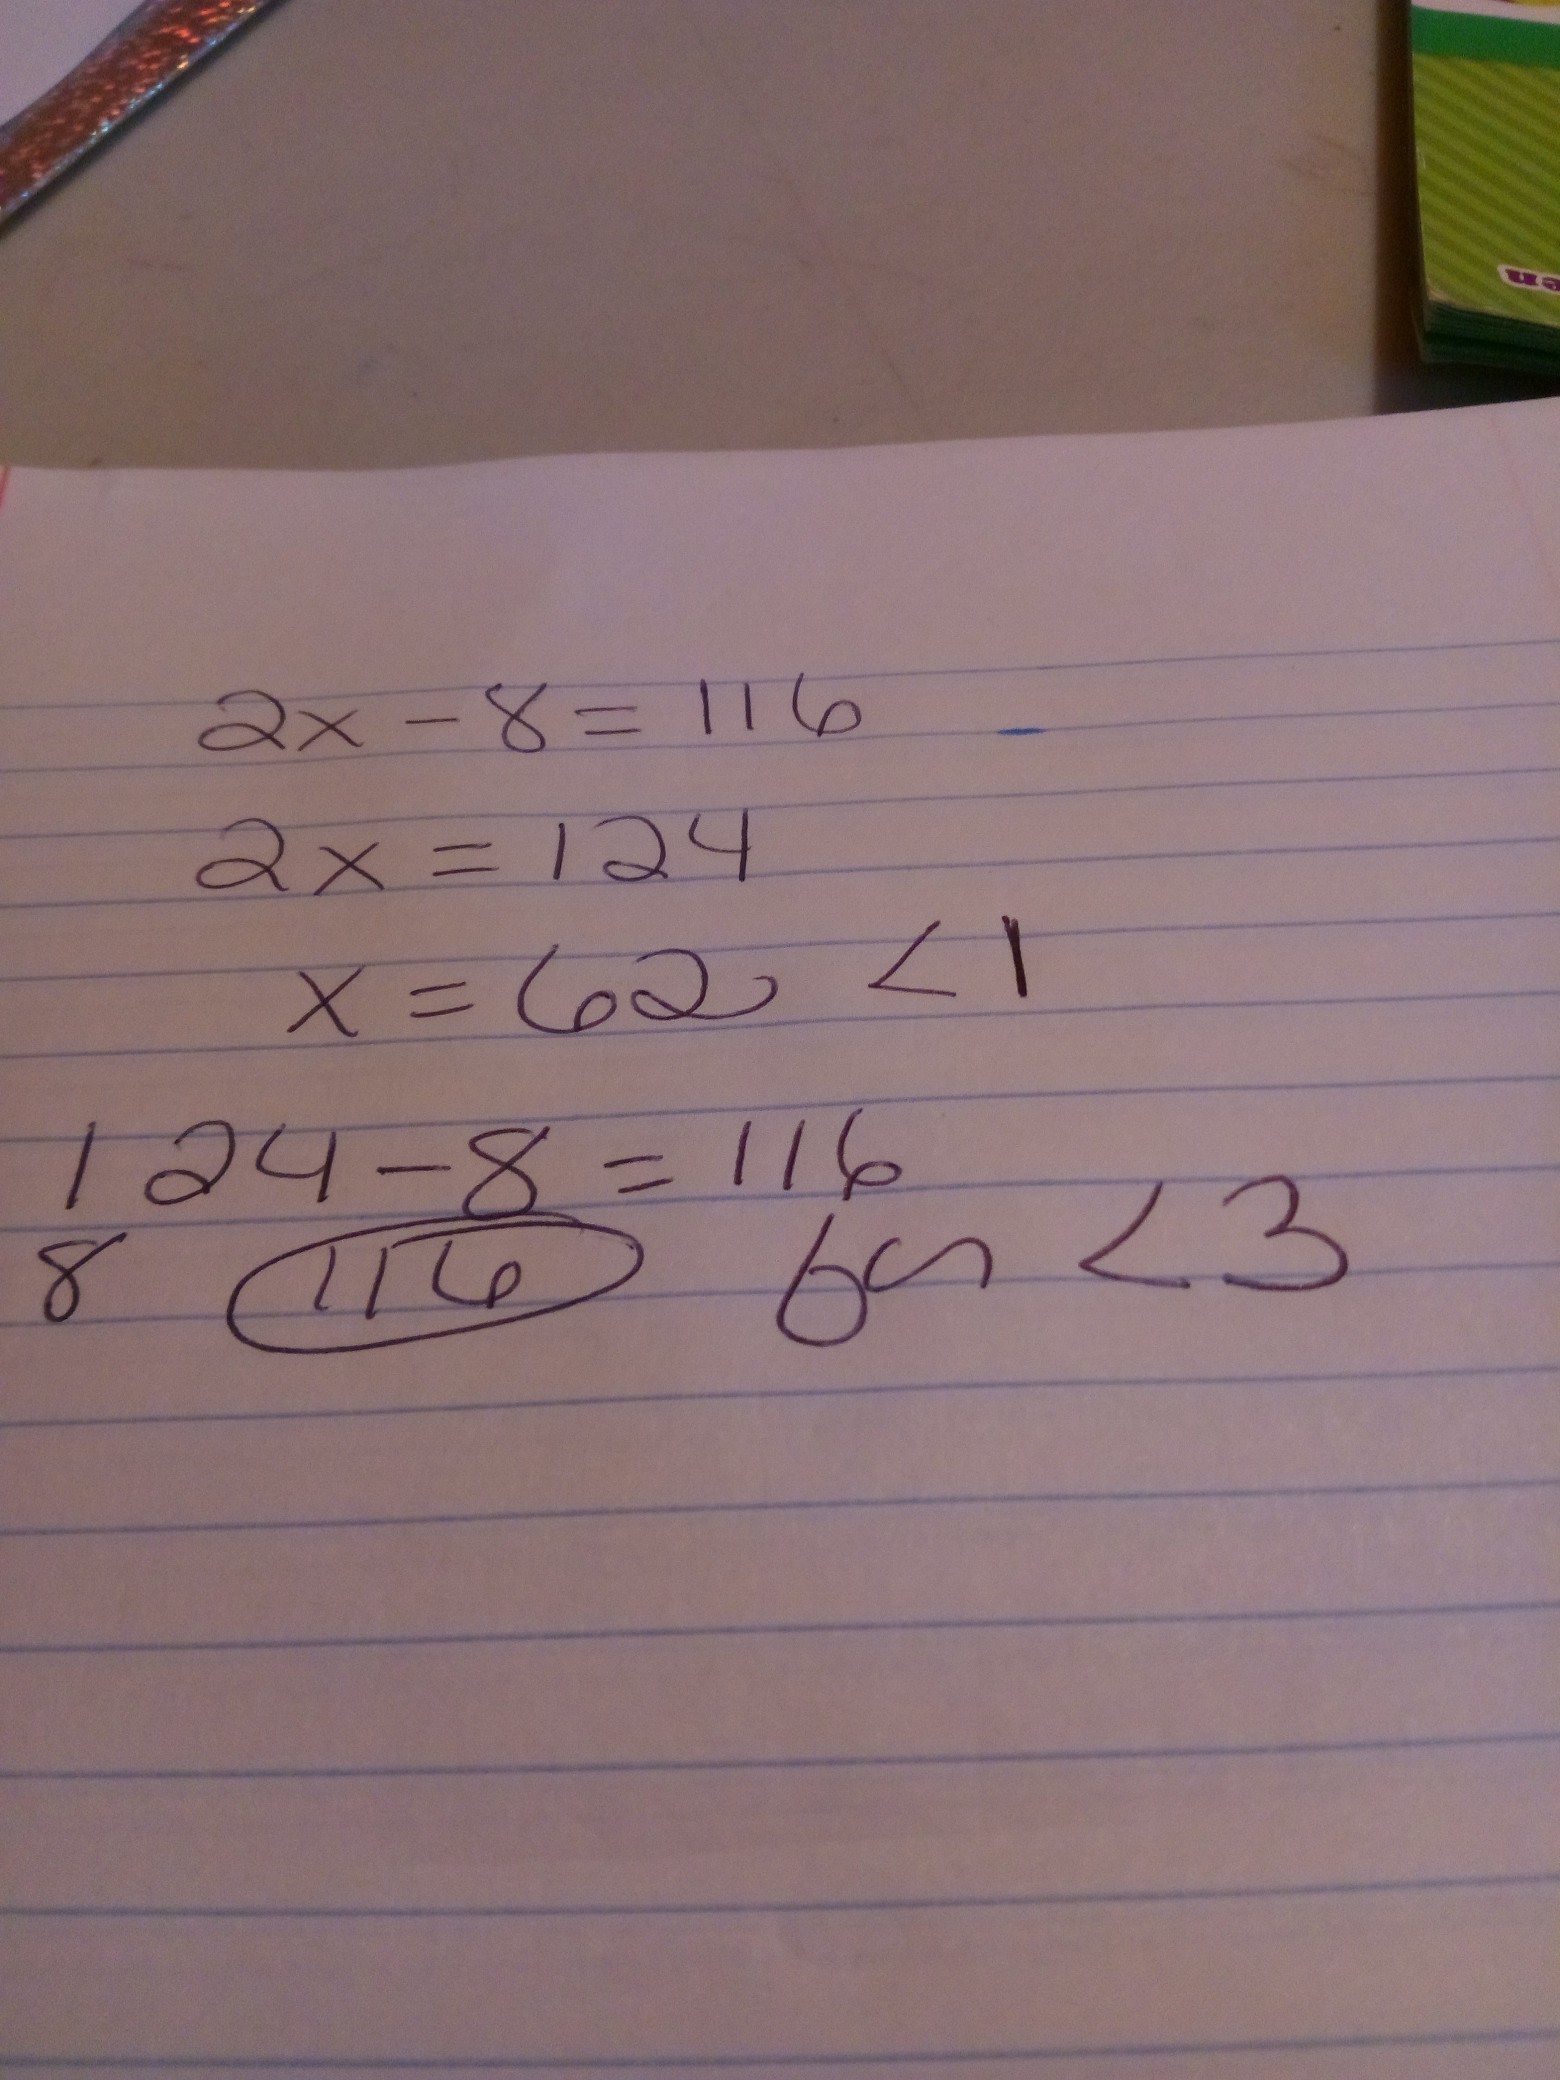 2x - 8 = 116
2x = 124
x = 62 <1
124 - 8 = 116
8 116 <3
en